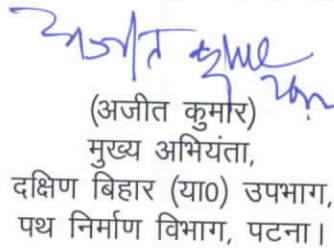 अजीत कुमार
(अजीत कुमार)
मुख्य अभियंता,
दक्षिण बिहार (या0) उपभाग,
पथ निर्माण विभाग, पटना।